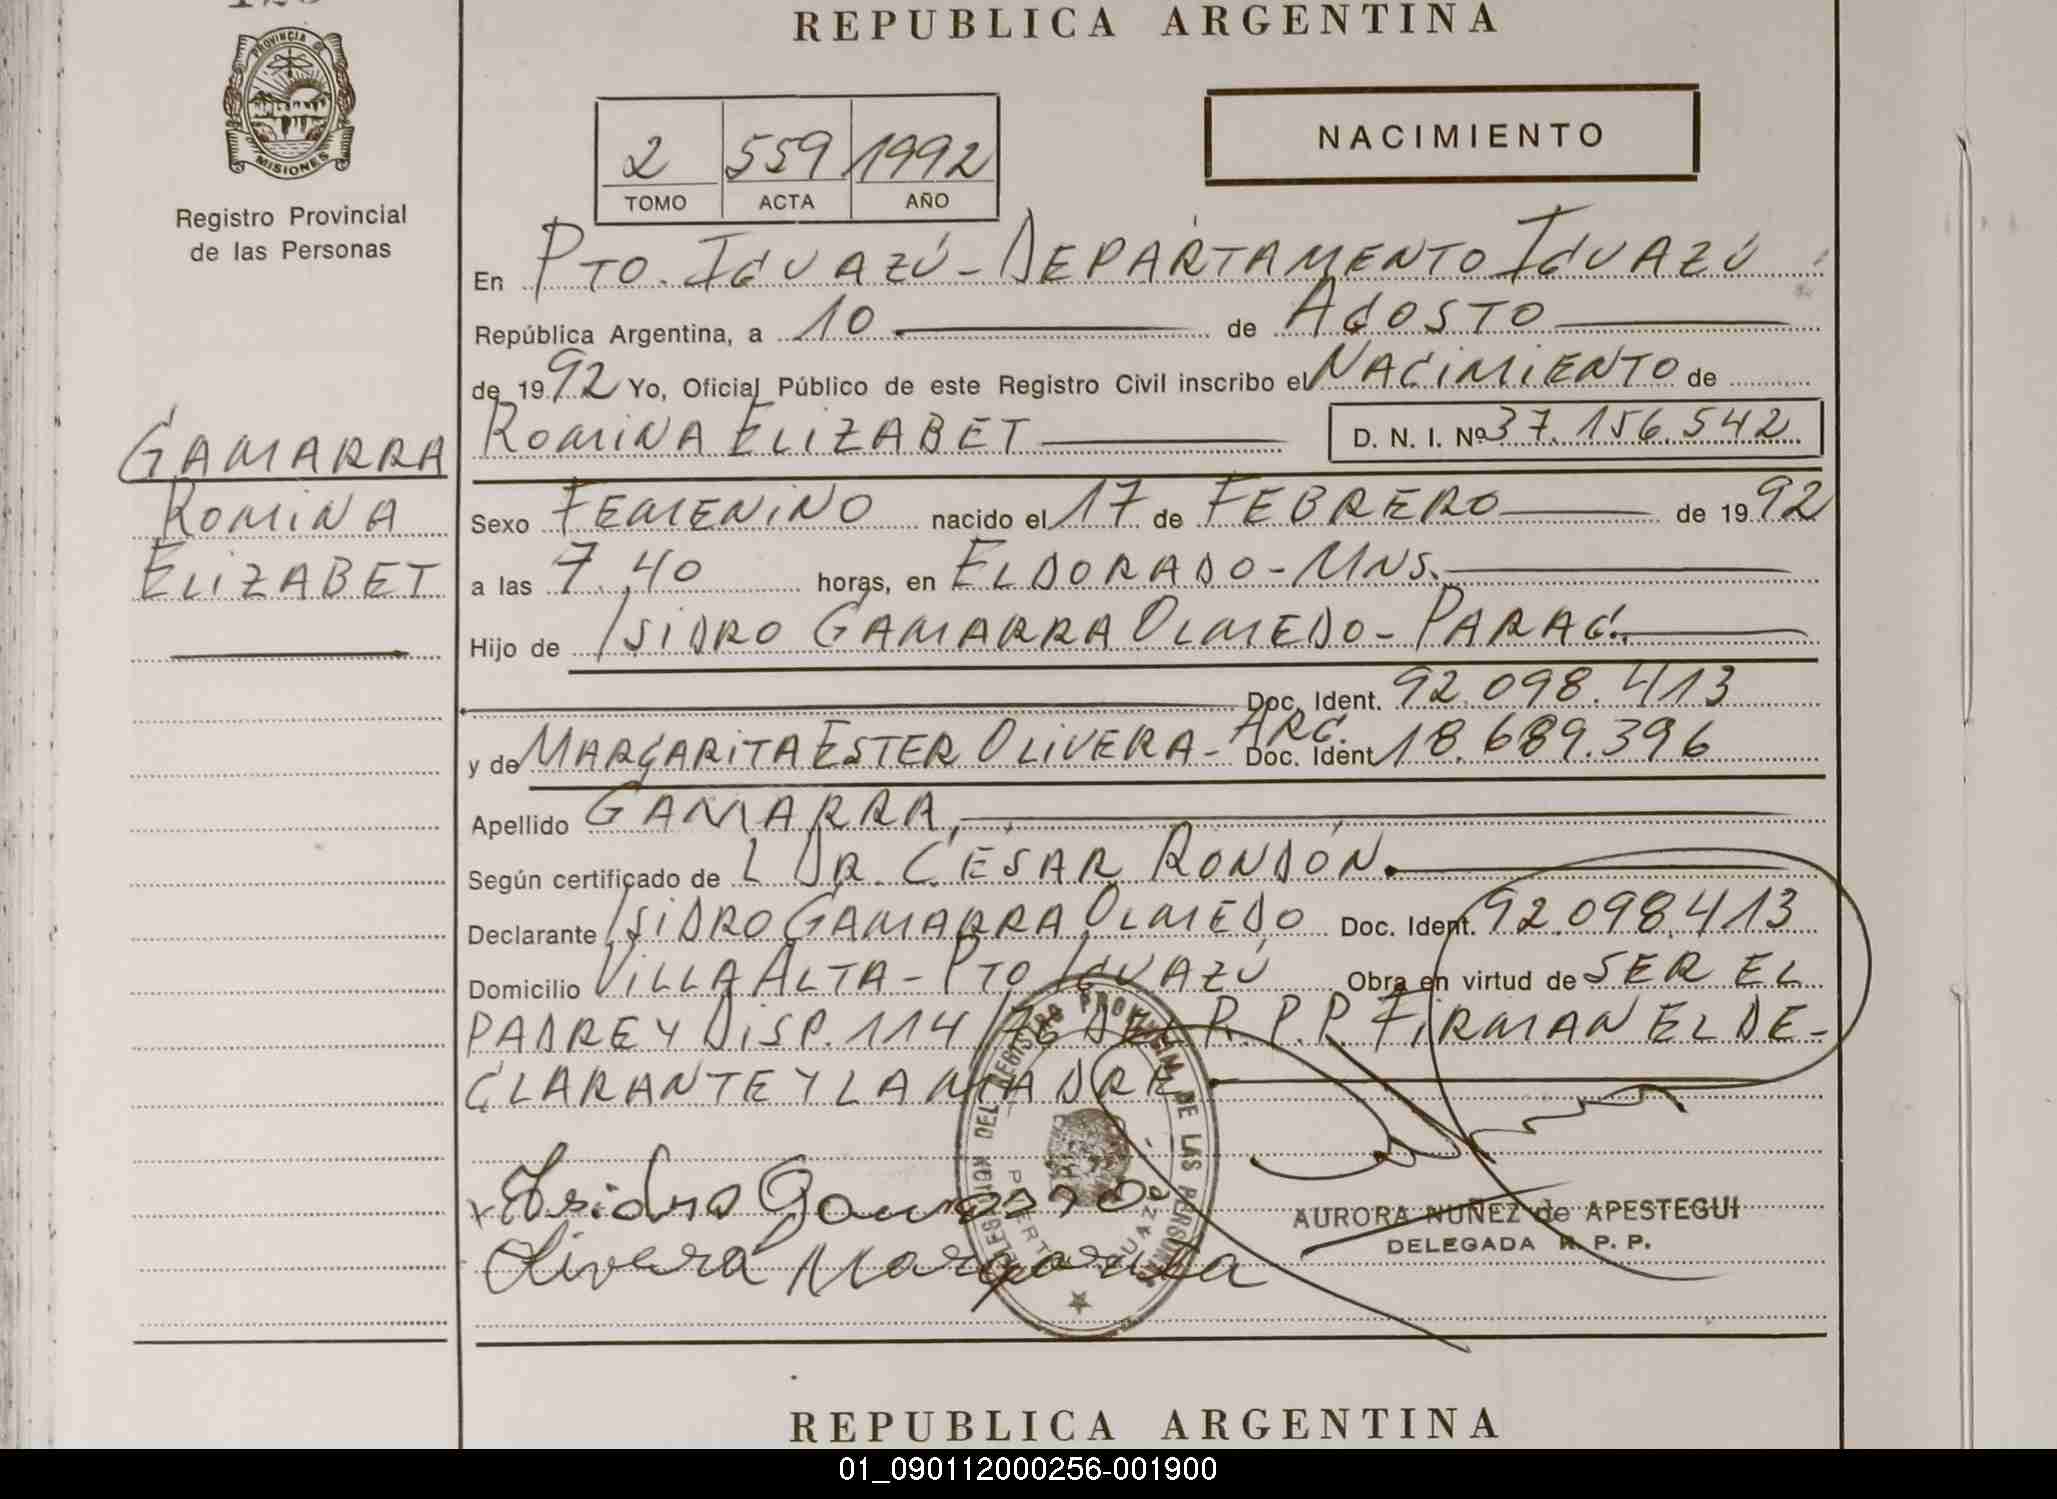 REPUBLICA ARGENTINA
PROVINCIA DE MISIONES
Registro Provincial
de las Personas
2 559 1992
TOMO ACTA AÑO
NACIMIENTO
En PTO. IGUAZÚ - DEPARTAMENTO IGUAZÚ
República Argentina, a 10 de AGOSTO
de 1992 Yo, Oficial Público de este Registro Civil inscribo el NACIMIENTO de
ROMINA ELIZABET D. N. I. Nº 37.156.542
GAMARRA
ROMINA
ELIZABET
Sexo FEMENINO nacido el 17 de FEBRERO de 1992
a las 7.40 horas, en ELDORADO - MNS.
Hijo de ISIDRO GAMARRA OLMEDO - PARAG.
Doc. Ident. 92.098.413
y de MARGARITA ESTER OLIVERA - ARG. Doc. Ident 18.689.396
Apellido GAMARRA,
Según certificado de L DR. CESAR RONDÓN.
Declarante ISIDRO GAMARRA OLMEDO Doc. Ident. 92.098.413
Domicilio VILLA ALTA - PTO IGUAZÚ Obra en virtud de SER EL
PADRE Y DISP. 114/76 DEL R. P. P. FIRMAN EL DE-
CLARANTE Y LA MADRE
Isidro Gamarra
Olivera Margarita
DEL REGISTRO PROVINCIAL DE LAS PERSONAS
AURORA NUÑEZ de APESTEGUI
DELEGADA R. P. P.
REPUBLICA ARGENTINA
01_090112000256-001900